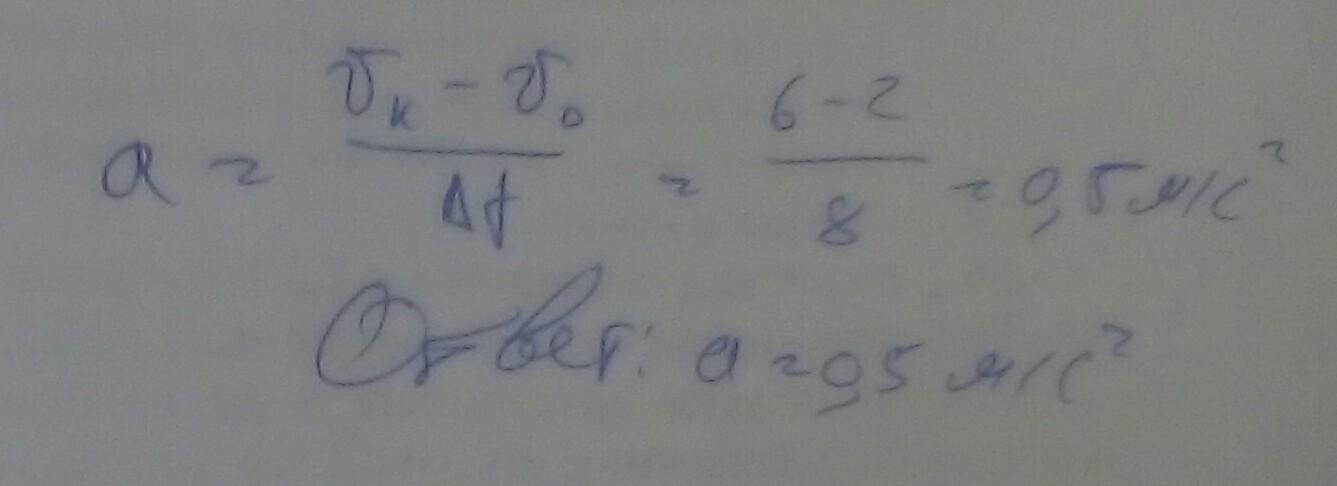 a = (v_к - v_0) / Δt = (6 - 2) / 8 = 0,5 м/с²
Ответ: a = 0,5 м/с²